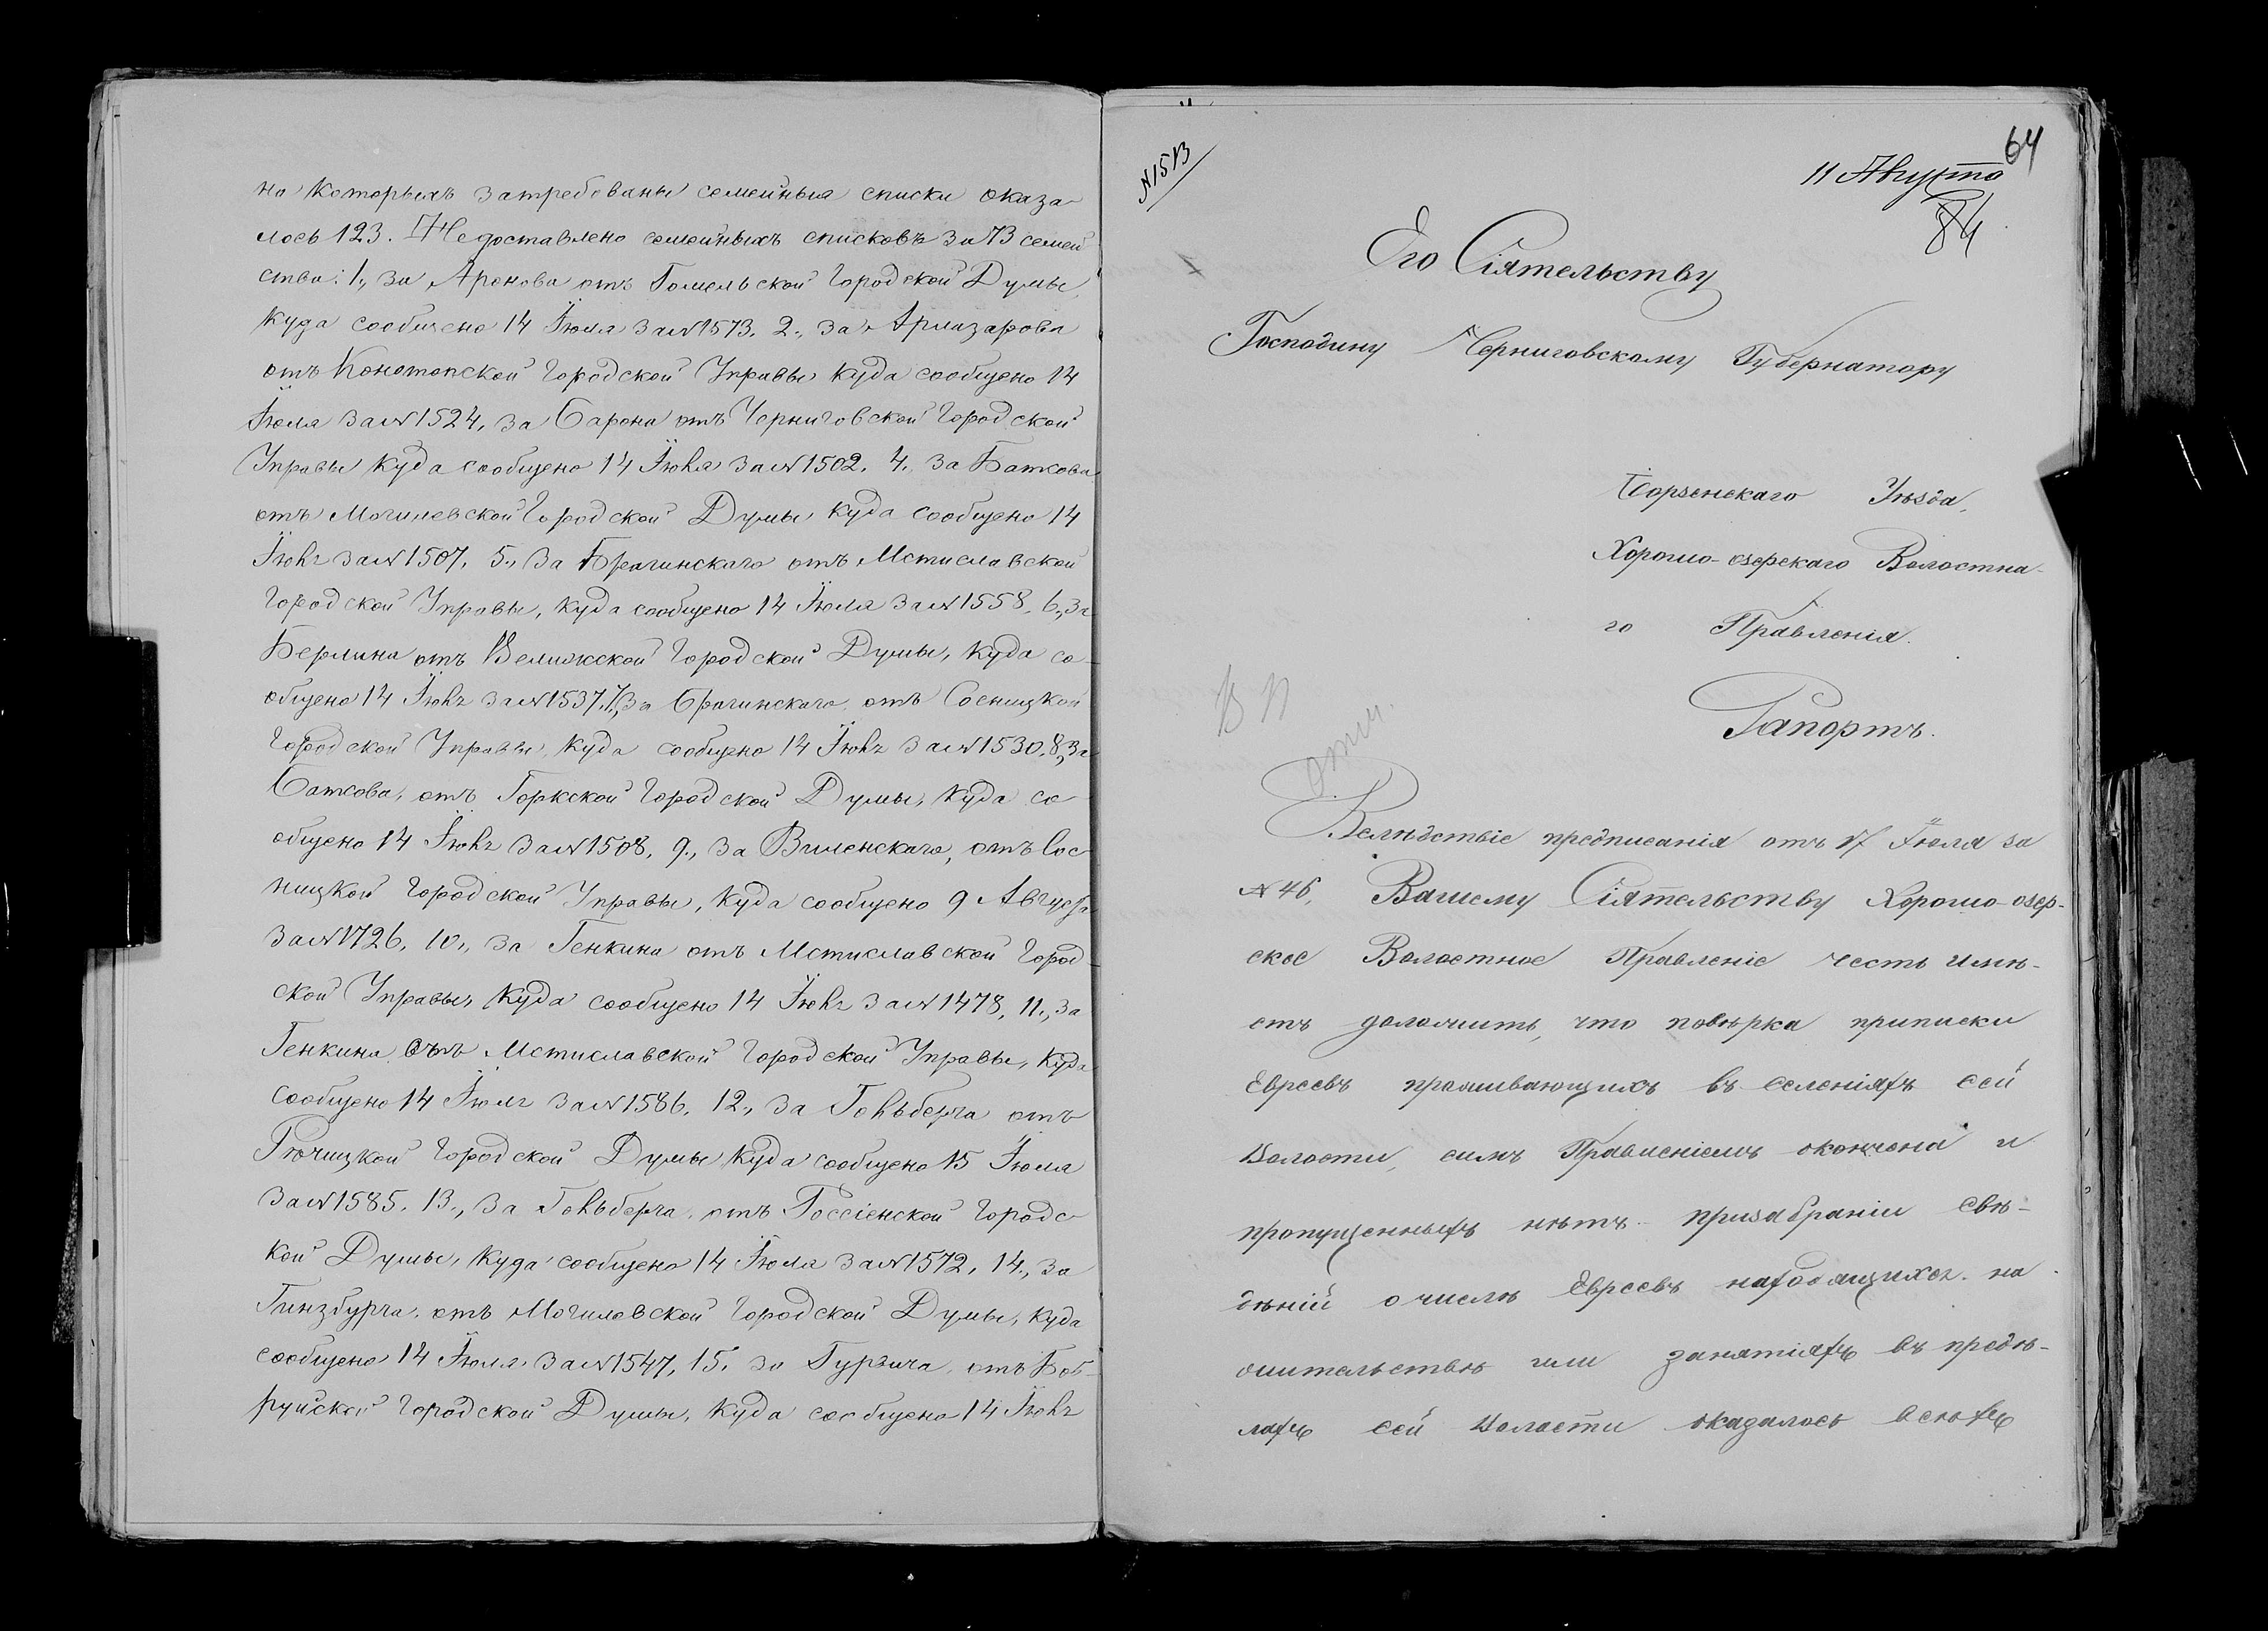 на которыхъ затребованы семейныя списки оказа-
лось 123. Недоставлено семейныхъ списковъ за 73 семей
ства: 1., за Аронова отъ Гомельской Городской Думы,
куда сообщено 14 Іюля за № 1573. 2., за
отъ Конотопской Городской Управы куда сообщено 14
Іюля за № 1524, за Барона отъ Черниговской Городской
Управы куда сообщено 14 Іюля за № 1502. 4., за Баткова
отъ Могилевской Городской Думы куда сообщено 14
Іюля за № 1507, 5., за Брагинскаго отъ Мстиславской
Городской Управы, куда сообщено 14 Іюля за № 1558. 6., за
Берлина отъ Велижской Городской Думы, куда со-
общено 14 Іюля за № 1537. 7., за Брагинскаго, отъ Сосницкой
Городской Управы, куда сообщено 14 Іюля за № 1530. 8., за
Баткова, отъ Горкской Городской Думы, куда со-
общено 14 Іюля за № 1508, 9., за Виленскаго, отъ Сос-
ницкой Городской Управы, куда сообщено 9 Августа
за № 1726, 10., за Генкина отъ Мстиславской Город-
ской Управы, куда сообщено 14 Іюля за № 1478, 11., за
Генкина отъ Мстиславской Городской Управы, куда
сообщено 14 Іюля за № 1586, 12., за Гольберга отъ
Рѣчицкой Городской Думы куда сообщено 15 Іюля
за № 1585. 13., за Гольберга, отъ Россіенской Городс-
кой Думы, куда сообщено 14 Іюля за № 1572, 14., за
Гинзбурга, отъ Могилевской Городской Думы, куда
сообщено 14 Іюля за № 1547, 15. за Гурвича, отъ Боб-
руйской Городской Думы, куда сообщено 14 Іюля
64
№ 1513
11 Августа
84
Его Сіятельству
Господину Черниговскому Губернатору
Борзенскаго Уѣзда,
Хорошо-озерскаго Волостна-
го Правленія.
В П
Рапортъ.
Вслѣдствіе предписанія отъ 17 Іюля за
№ 46, Вашему Сіятельству Хорошо-озер-
ское Волостное Правленіе честь имѣ-
етъ доложить, что повѣрка приписки
Евреевъ проживающихъ въ селеніяхъ сей
Волости, симъ Правленіемъ окончена и
пропущенныхъ нѣтъ при забраніи свѣ-
дѣній о числѣ Евреевъ находящихся на
жительствѣ или занятіяхъ въ предѣ-
лахъ сей Волости оказалось всѣхъ